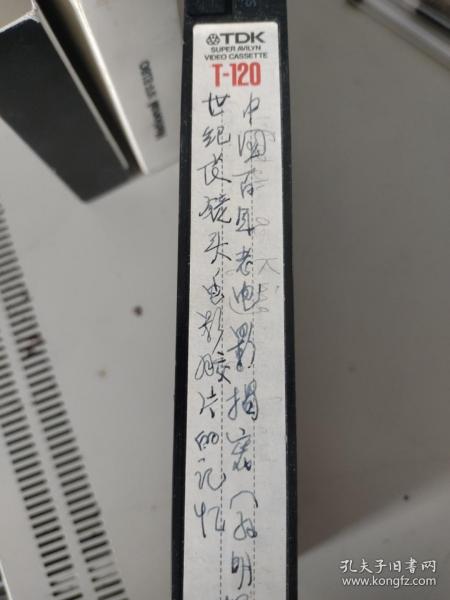 TDK
SUPER AVILYN
VIDEO CASSETTE
T-120
中国百年老电影揭密(孙明
世纪镜头电影胶片的记忆
孔夫子旧书网
www.kongfz.com